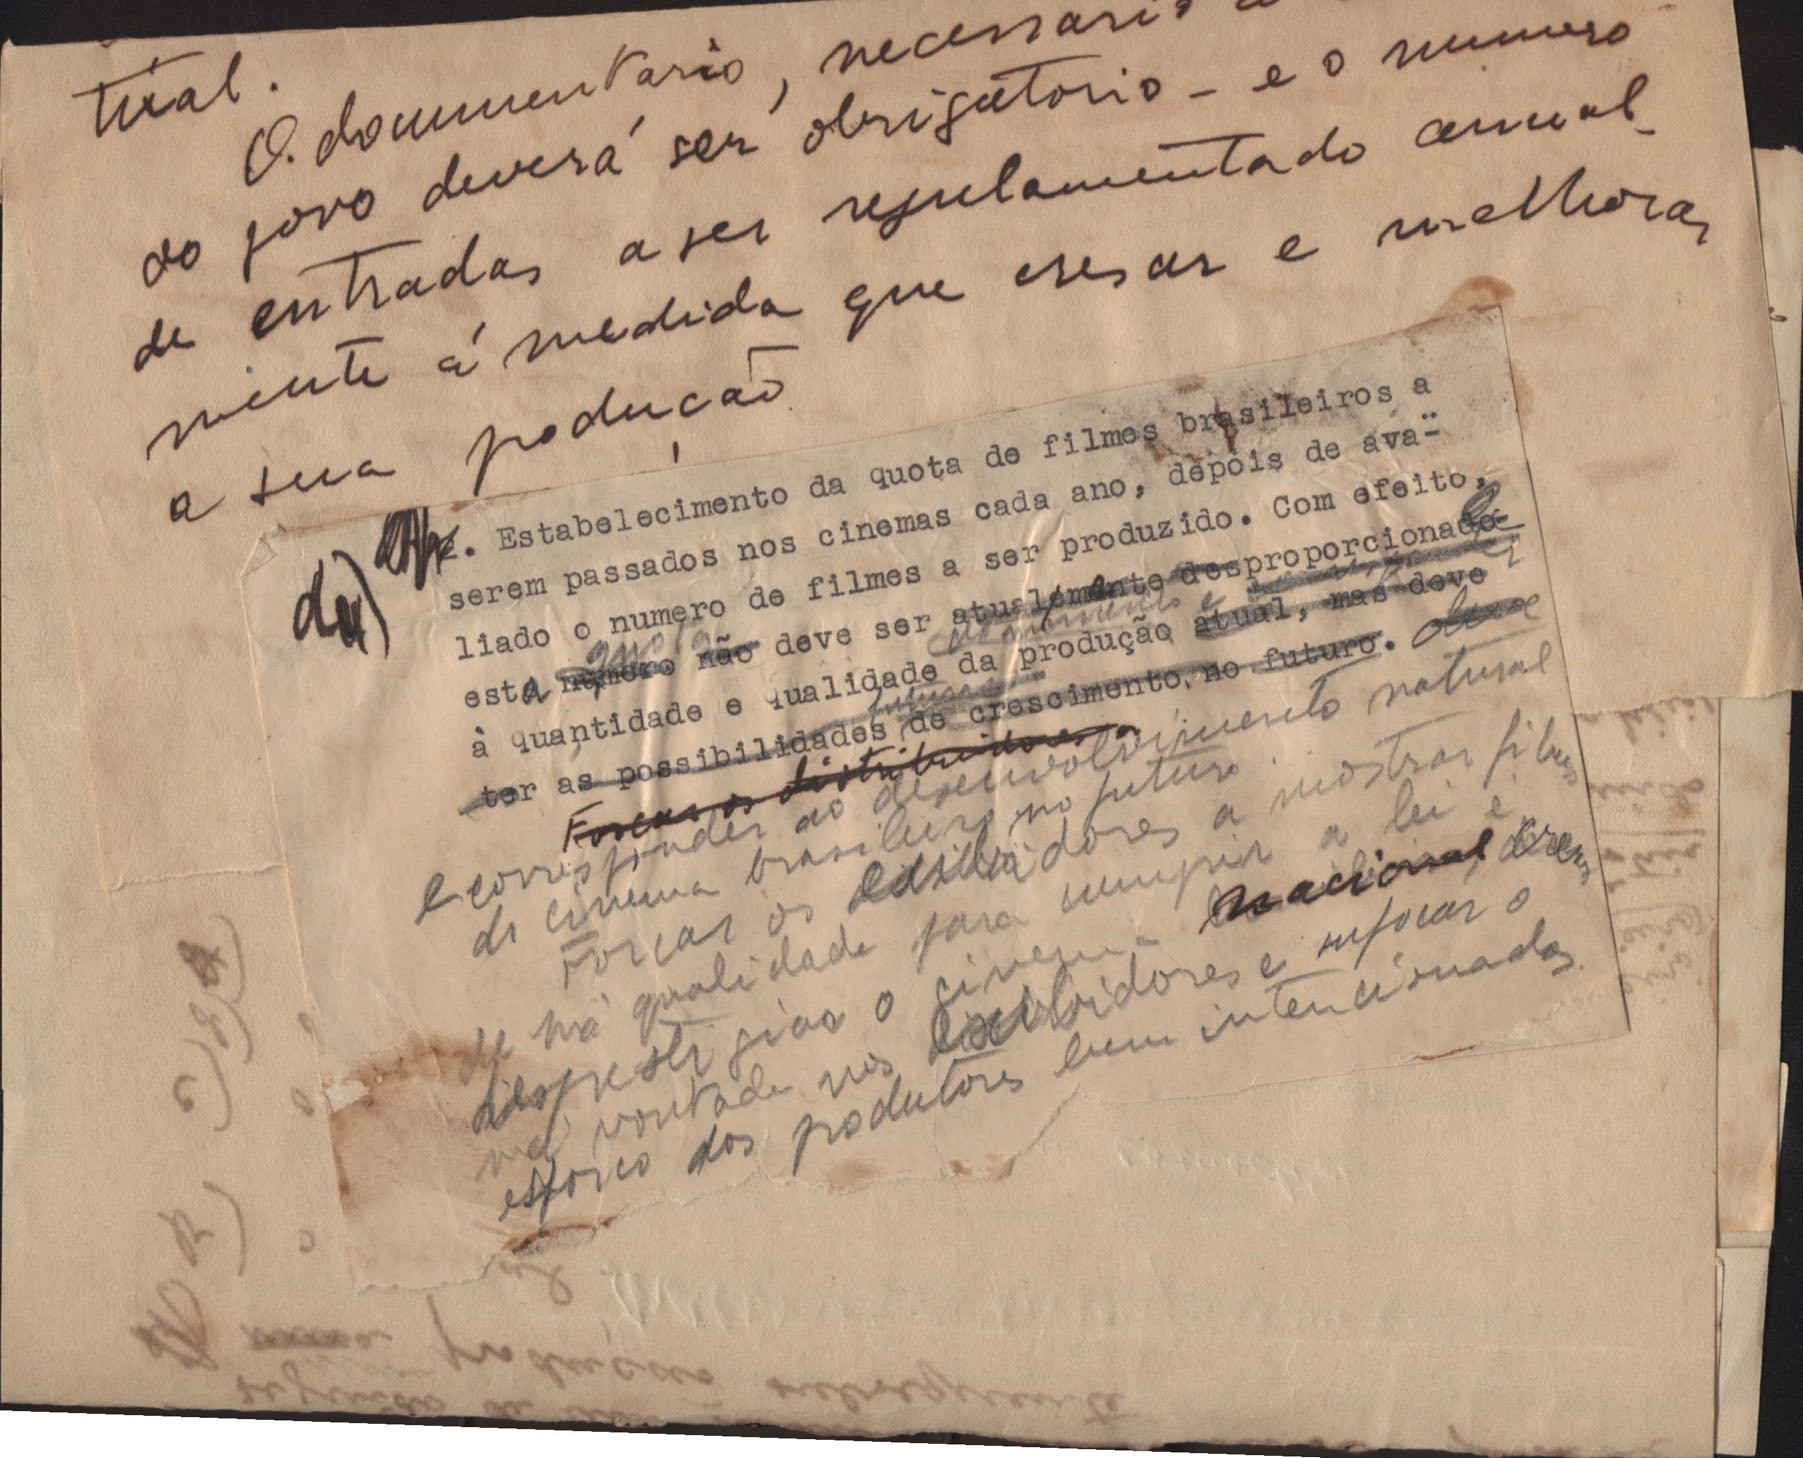 tual.
O documentario, necessario
ao povo deverá ser obrigatorio - e o numero
de entradas a ser regulamentado anual-
mente á medida que cresar e melhorar
a sua produção
da) Estabelecimento da quota de filmes brasileiros a
serem passados nos cinemas cada ano, depois de ava-
liado o numero de filmes a ser produzido. Com efeito,
esta quota numero não deve ser atualmente desproporcionada
à quantidade e qualidade da produção atual, mas deve
ter as possibilidades de crescimento no futuro. deve
Forçar os distribuidores a
e corresponder ao desenvolvimento natural
do cinema brasileiro no futuro.
Forçar os exibidores a mostrar filmes
de má qualidade para cumprir a lei é
desprestigiar o cinema nacional, crear
má vontade nos exibidores e sufocar o
esforço dos produtores bem intencionados.